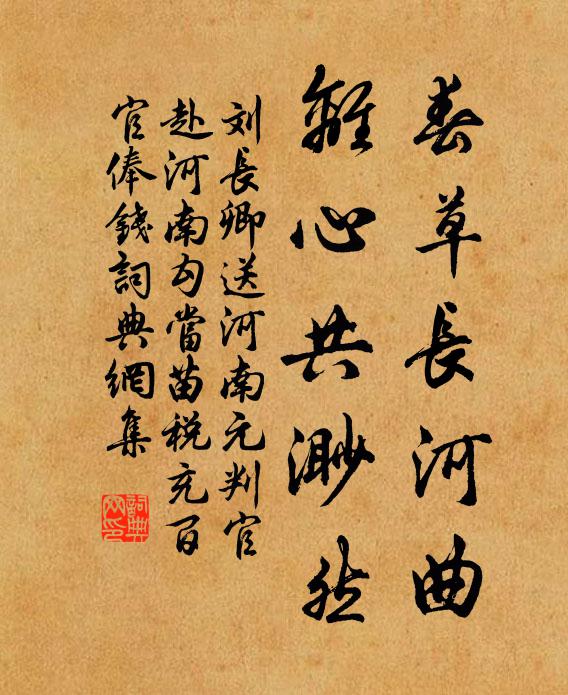 春草長河曲
離心共渺然
刘長卿送河南元判官
赴河南勾當苗税充百
官俸錢詞典網集
詞典
网印